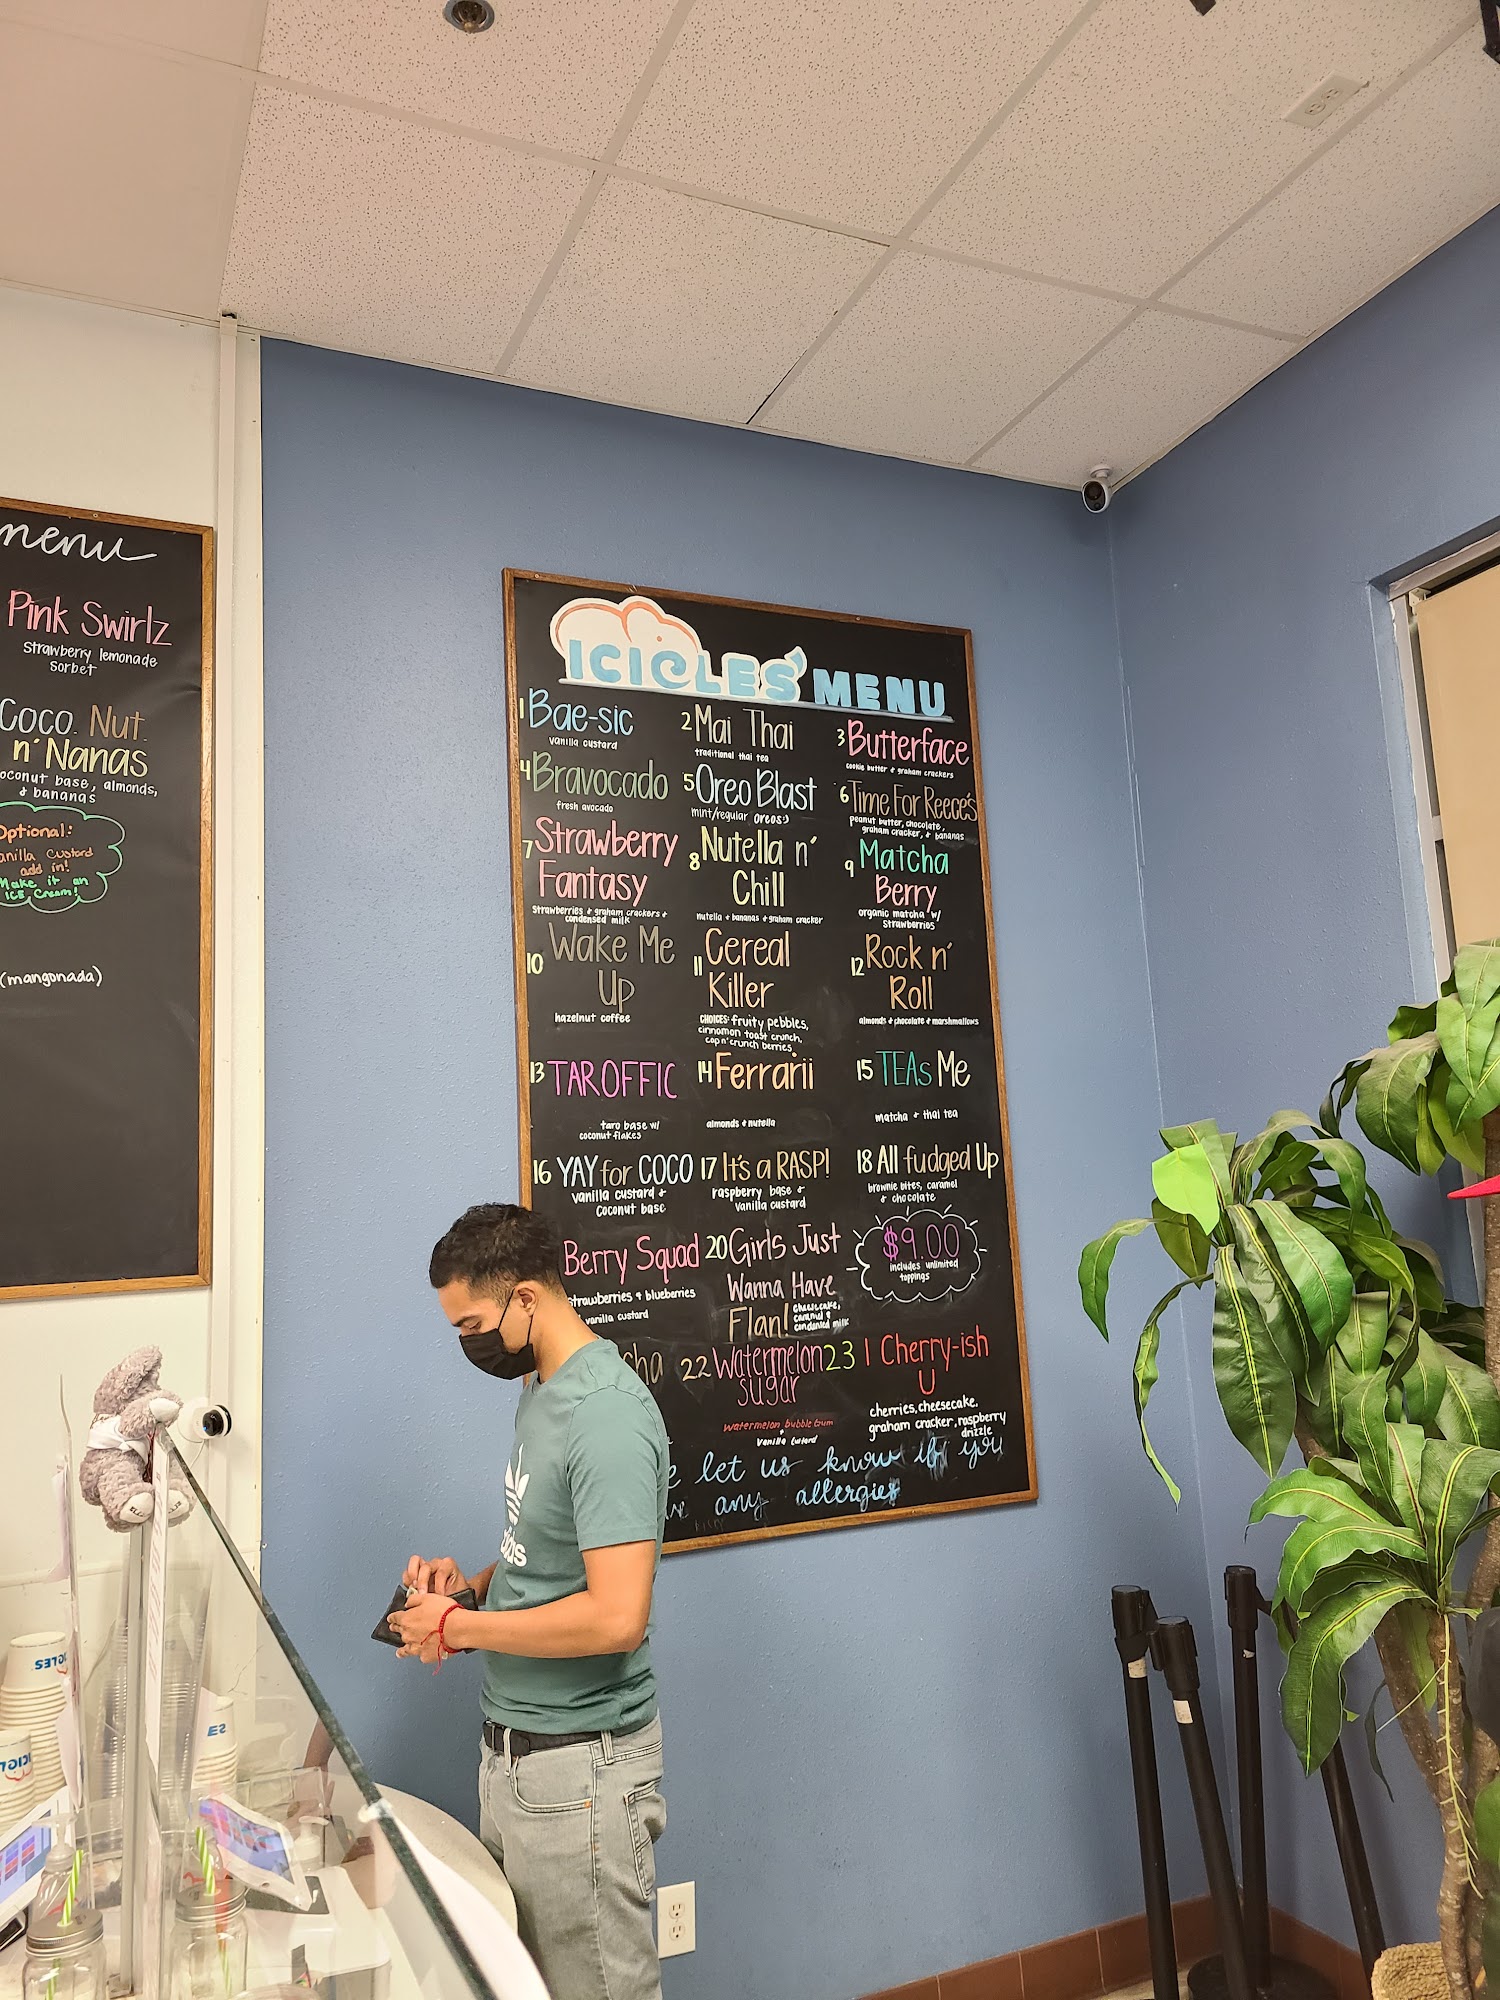 menu
Pink Swirlz
Strawberry lemonade
sorbet
Coco. Nut.
n' Nanas
coconut base, almonds,
& bananas
Optional:
Vanilla Custard
add in!
Make it an
ICE Cream!
(mangonada)
ICICLES' MENU
1 Bae-sic
vanilla custard
2 Mai Thai
traditional thai tea
3 Butterface
cookie butter & graham crackers
4 Bravocado
fresh avocado
5 Oreo Blast
mint/regular oreos:)
6 Time For Reece's
peanut butter, chocolate,
graham cracker, & bananas
7 Strawberry
Fantasy
strawberries & graham crackers &
condensed milk
8 Nutella n'
Chill
nutella & bananas & graham cracker
9 Matcha
Berry
organic matcha w/
strawberries
10 Wake Me
Up
hazelnut coffee
11 Cereal
Killer
CHOICES: fruity pebbles,
cinnamon toast crunch,
cap n' crunch berries
12 Rock n'
Roll
almonds & chocolate & marshmallows
13 TAROFFIC
taro base w/
coconut flakes
14 Ferrarii
almonds & nutella
15 TEAs Me
matcha & thai tea
16 YAY for COCO
vanilla custard &
coconut base
17 It's a RASP!
raspberry base &
vanilla custard
18 All fudged Up
brownie bites, caramel
& chocolate
Berry Squad
strawberries & blueberries
vanilla custard
20 Girls Just
Wanna Have
Flan!
cheesecake,
caramel &
condensed milk
$9.00
includes unlimited
toppings
cha
22 Watermelon
sugar
watermelon bubble gum
+
vanilla custard
23 I Cherry-ish
U
cherries, cheesecake,
graham cracker, raspberry
drizzle
let us know if you
any allergies
adidas